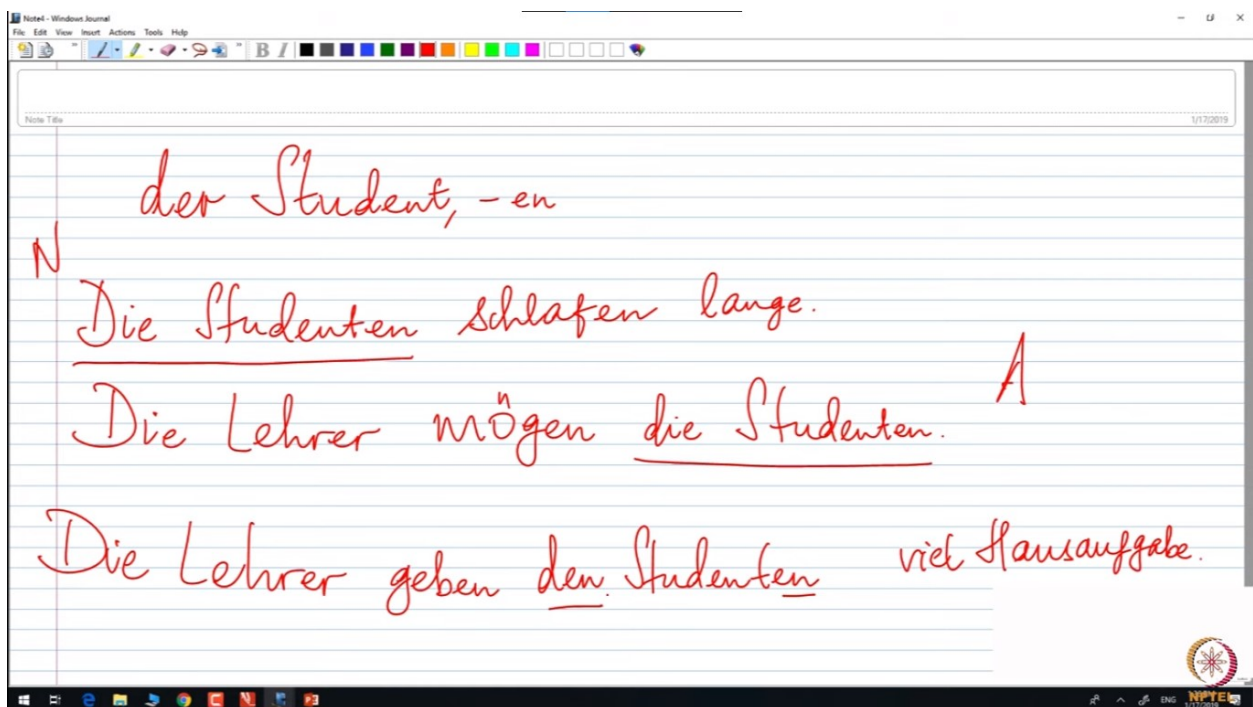 Note4 - Windows Journal
File Edit View Insert Actions Tools Help
B I
Note Title
1/17/2019
der Student, -en
N
Die Studenten schlafen lange.
A
Die Lehrer mögen die Studenten.
Die Lehrer geben den Studenten viel Hausaufgabe.
ENG
1/17/2019
NPTEL